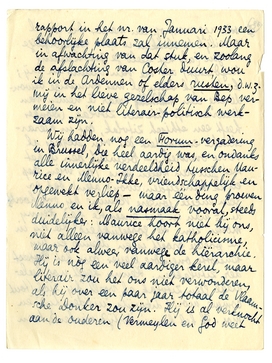 rapport in het nr. van Januari 1933 een
behoorlijke plaats zal innemen. Maar
in afwachting van dat stuk, en zoolang
de afwachting van Coster duurt, wou
ik in de Ardennen of elders rusten, d.w.z.
mij in het lieve gezelschap van Bep ver-
meien en niet literair-politisch werk-
zaam zijn.
Wij hadden nog een Forum-vergadering
in Brussel, die heel aardig was en ondanks
alle innerlijke verdeeldheid tusschen Mau-
rice en Menno-Ikke, vriendschappelijk en
opgewekt verliep — maar een ding proeven
Menno en ik, als nasmaak vooral, steeds
duidelijker: Maurice hoort niet bij ons,
niet alleen vanwege het katholicisme,
maar ook alweer, vanwege de hiërarchie.
Hij is nog een veel aardiger kerel, maar
literair zou het ons niet verwonderen,
als hij over een paar jaar totaal de Vlaam-
sche Donker zou zijn. Hij is al verknocht
aan de ouderen (Vermeylen en God weet